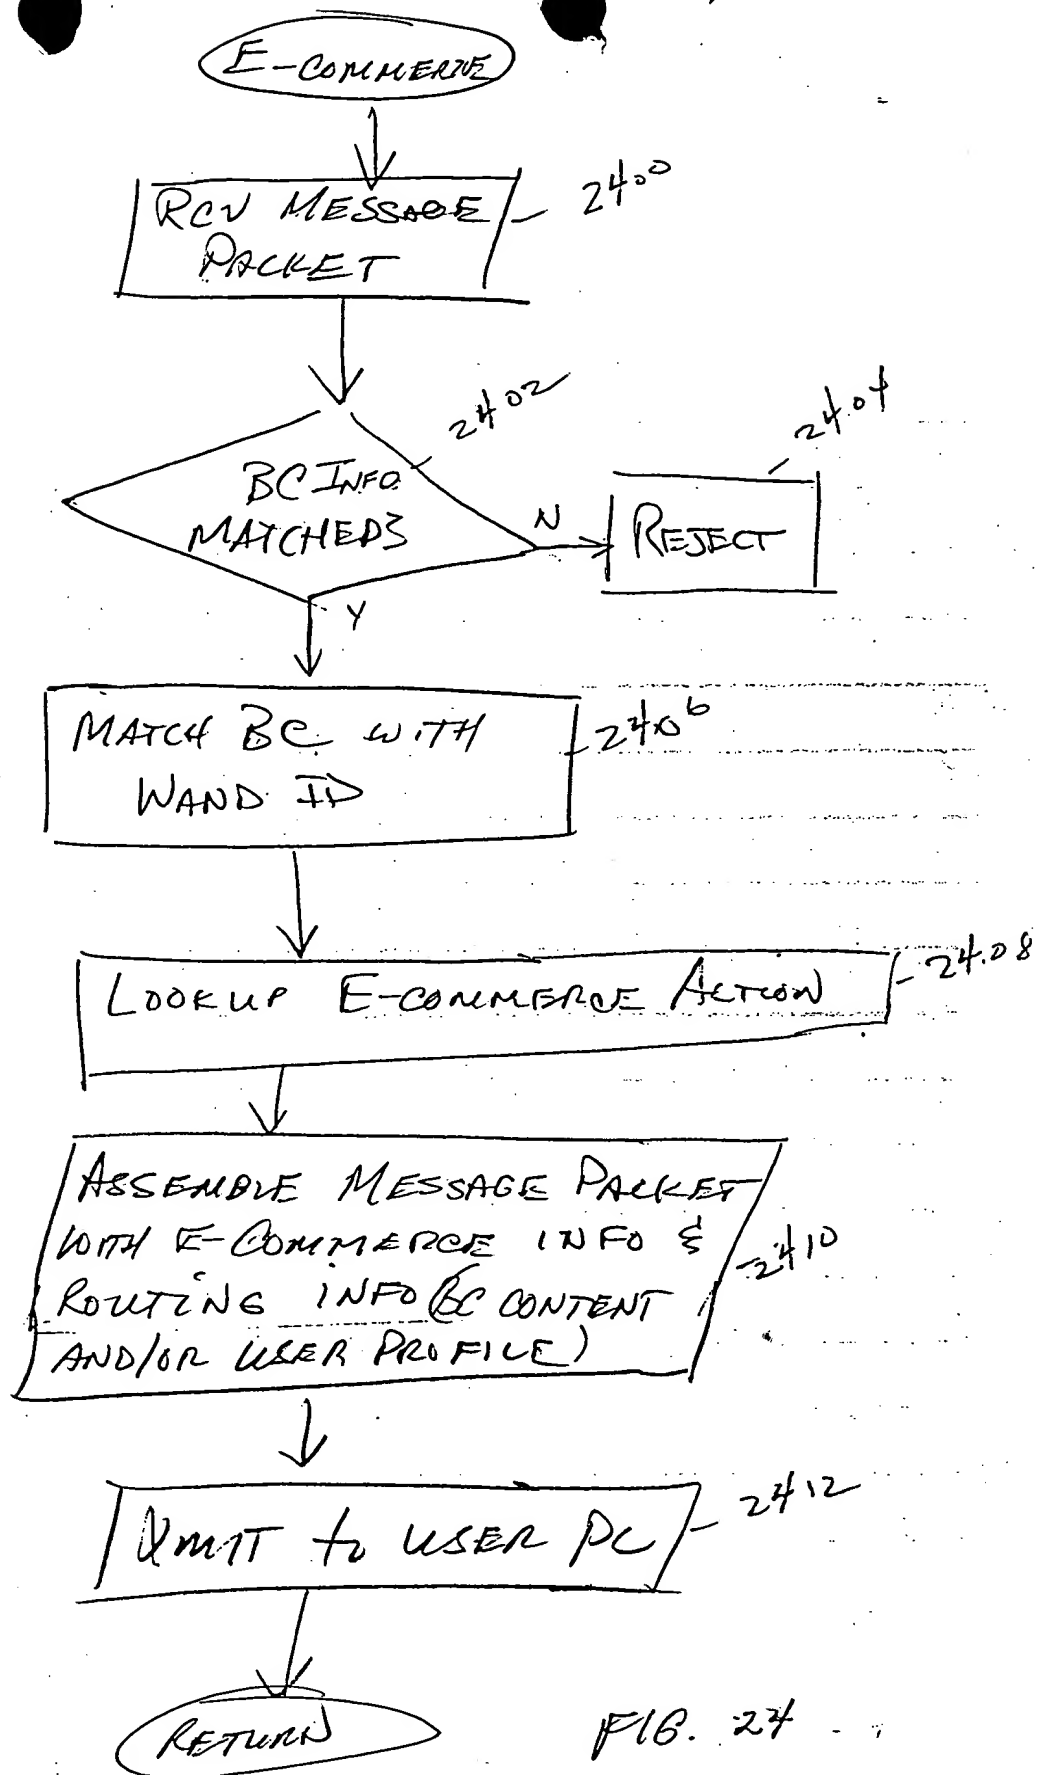 E-COMMERCE
2400
RCV MESSAGE
PACKET
2402
2404
BC INFO
MATCHED?
N
REJECT
Y
MATCH BC WITH
2406
WAND ID
LOOKUP E-COMMERCE ACTION
2408
ASSEMBLE MESSAGE PACKET
WITH E-COMMERCE INFO &
2410
ROUTING INFO (BC CONTENT
AND/OR USER PROFILE)
2412
XMIT to USER PC
RETURN
FIG. 24